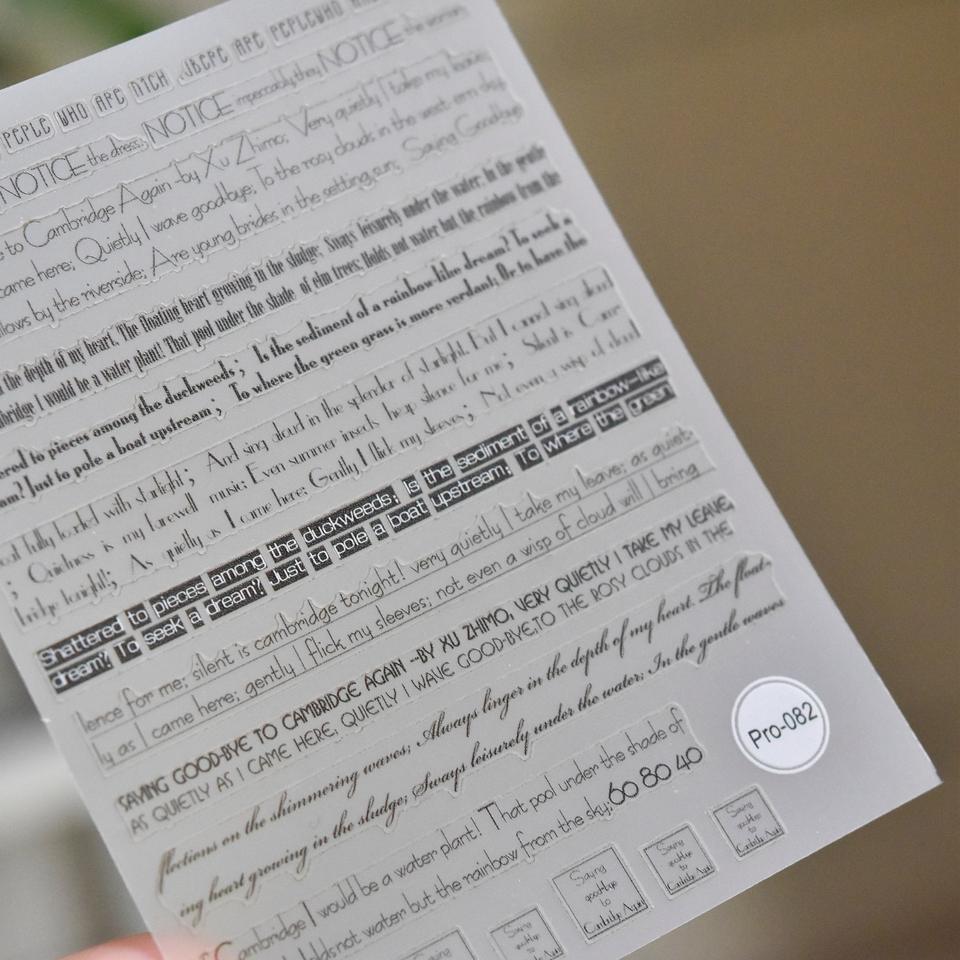 PEPLE WHO ARE RICH .WERE ARE PEPLEWHO
NOTICE the dress, NOTICE impeccably, they NOTICE the woman.
e to Cambridge Again -by Xu Zhimo; Very quietly I take my leave;
came here; Quietly I wave goodbye; To the rosy clouds in the west-ern sky.
llows by the riverside; Are young brides in the setting sun; Saying Goodbye
the depth of my heart. The floating heart growing in the sludge; Sways leisurely under the water; In the gentle
mbridge I would be a water plant! That pool under the shade of elm trees; Holds not water but the rainbow from the
ered to pieces among the duckweeds; Is the sediment of a rainbow-like dream? To seek a
am? Just to pole a boat upstream; To where the green grass is more verdant; Or to have the
oat fully loaded with starlight; And sing aloud in the splendor of starlight. But I cannot sing aloud
; Quietness is my farewell music; Even summer insects heap silence for me; Silent is Cam-
bridge tonight!; As quietly as I came here; Gently I flick my sleeves; Not even a wisp of cloud
Shattered to pieces among the duckweeds; Is the sediment of a rainbow-like
dream? To seek a dream? Just to pole a boat upstream; To where the green
lence for me; silent is cambridge tonight! very quietly I take my leave; as quiet-
ly as I came here; gently I flick my sleeves; not even a wisp of cloud will I bring
SAYING GOOD-BYE TO CAMBRIDGE AGAIN --BY XU ZHIMO, VERY QUIETLY I TAKE MY LEAVE,
AS QUIETLY AS I CAME HERE, QUIETLY I WAVE GOOD-BYE,TO THE ROSY CLOUDS IN THE
flections on the shimmering waves; Always linger in the depth of my heart. The float-
ing heart growing in the sludge; Sways leisurely under the water; In the gentle waves
Pro-082
Cambridge I would be a water plant! That pool under the shade of
holds not water but the rainbow from the sky;60 80 40
Saying
goodbye
to
Cambridge Again
Saying
goodbye
to
Cambridge Again
Saying
goodbye
to
Cambridge Again
Saying
Saying